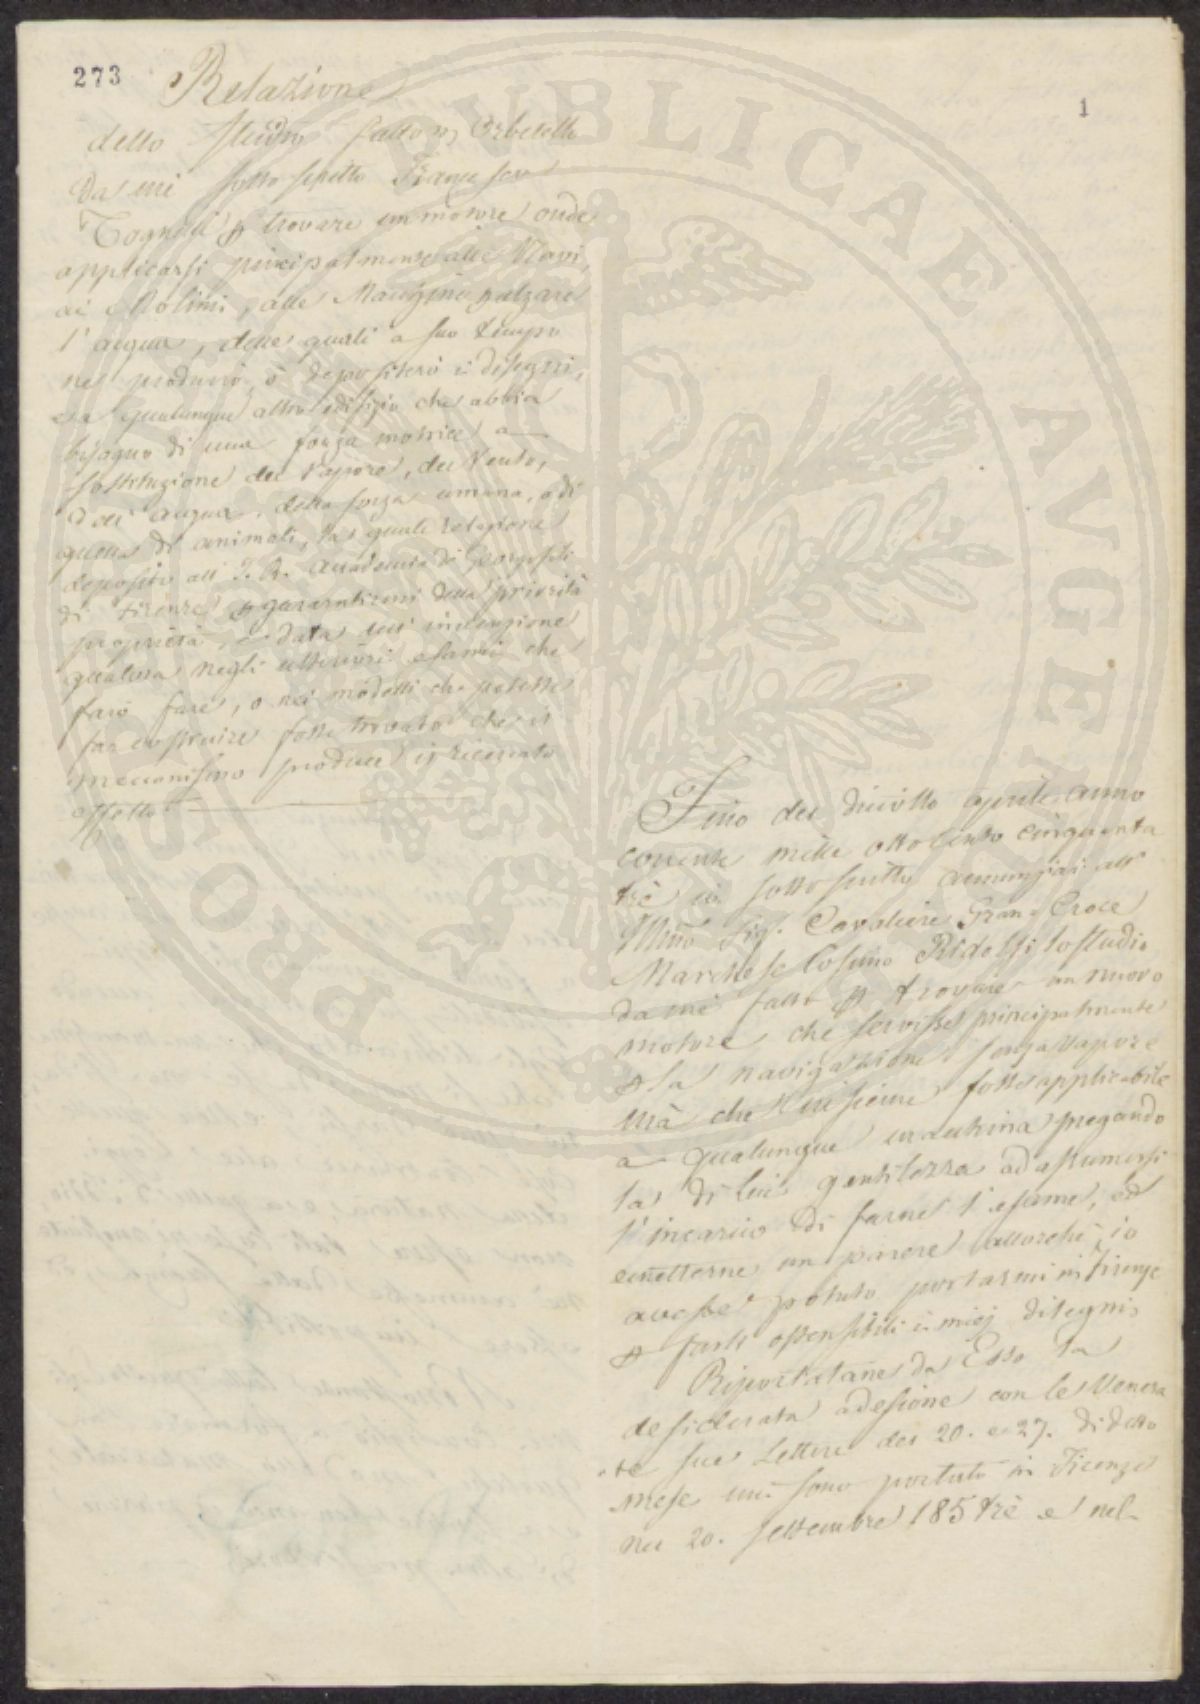 273
1
Relazione
dello Studio fatto in Orbetello
da mé sotto scritto Francesco
Tognetti p trovare un motore onde
applicarsi principalmente alle Navi,
ai Molini, alle Macchine p alzare
l'acqua, delle quali a suo tempo
ne produrrò, ò depositerò i disegni,
e a qualunque altro edifizio che abbia
bisogno di una forza motrice a
sostituzione del Vapore, del Vento,
dell'acqua, della forza umana, o di
quella di animali, la quale relazione
deposito all'I. R. Accademia de Georgofili
di Firenze p garantirmi della priorità
proprietà, e data dell'invenzione
qualora negli ulteriori esami che
farò fare, o nei modelli che potessi
far costruire fosse trovato che il
meccanismo produce il ricercato
effetto
Fino del diciotto aprile anno
corrente mille ottocento cinquanta
trè io sottoscritto annunziai all'
Illmo Sig. Cavaliere Gran=Croce
Marchese Cosimo Ridolfi lo studio
da mé fatto p trovare un nuovo
motore che servisse principalmente
p la navigazione senza vapore
mà che insieme fosse applicabile
a qualunque macchina pregando
la di lui gentilezza ad assumersi
l'incarico di farne l'esame, ed
emetterne un parere allorché io
avessi potuto portarmi in Firenze
p farli ostensibili i miei disegni.
Riportatane da Esso la
desiderata adesione con le Venera
te sue Lettere dei 20. e 27. di detto
mese mi sono portato in Firenze
nel 20. settembre 185trè e nel
PROSPERITATI PUBLICAE AUGENDAE